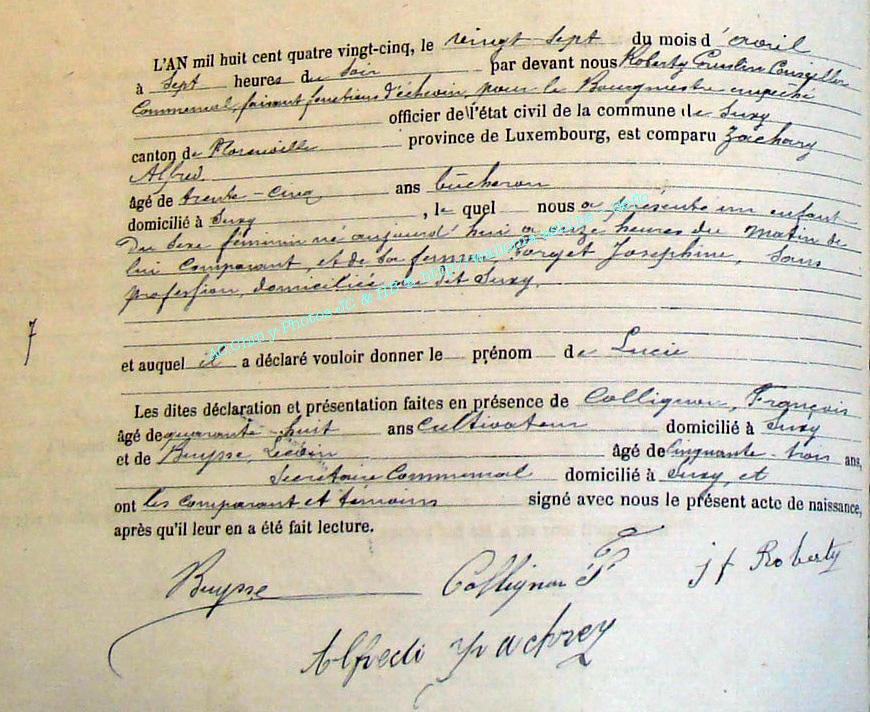 L'AN mil huit cent quatre vingt-cinq, le vingt-sept du mois d'avril
à Sept heures du Soir par devant nous Roberty Conseiller
Communal, faisant fonctions d'échevin, pour le Bourgmestre empêché
officier de l'état civil de la commune de Suxy
canton de Florenville province de Luxembourg, est comparu Zachary
Alfred
âgé de trente-cinq ans bûcheron
domicilié à Suxy, le quel nous a présenté un enfant
Du Sexe féminin né aujourd'hui à onze heures du Matin de
lui comparant, et de Sa femme Borget Josephine, Sans
profession, domiciliée au dit Suxy.
7
et auquel il a déclaré vouloir donner le prénom de Lucie
Les dites déclaration et présentation faites en présence de Collignon, François
âgé de quarante-huit ans Cultivateur domicilié à Suxy
et de Buysse, âgé de Cinquante-trois ans,
Secrétaire Communal domicilié à Suxy, et
ont les comparant et témoins signé avec nous le présent acte de naissance,
après qu'il leur en a été fait lecture.
Buysse Collignon F J f Roberty
Alfred Zachrey